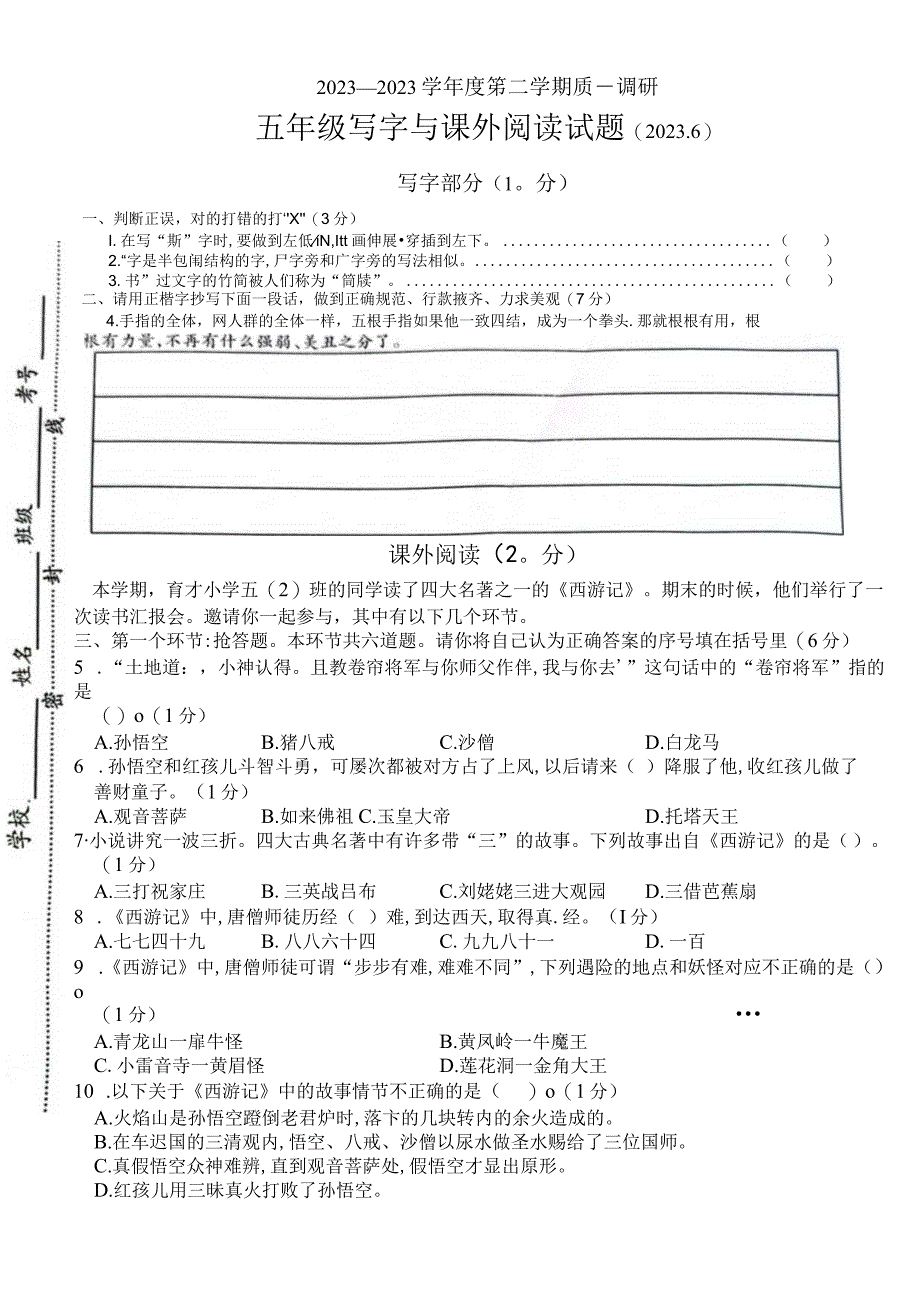 2023—2023 学年度第二学期质－调研
五年级写字与课外阅读试题（2023.6）
写字部分（1。分）
一、判断正误，对的打错的打‘"X"（3 分）
I. 在写“斯”字时,要做到左低⁄iN,Itt 画伸展•穿插到左下。 ................................（ ）
2.“字是半包闹结构的字,尸字旁和广字旁的写法相似。....................................（ ）
3. 书”过文字的竹简被人们称为“筒牍”。 ............................................（ ）
二、请用正楷字抄写下面一段话，做到正确规范、行款掖齐、力求美观（7 分）
4.手指的全体，网人群的全体一样，五根手指如果他一致四结，成为一个拳头. 那就根根有用，根
根有力量,不再有什么强弱、美丑之分了。
学校 姓名 班级 考号
密 封 线
课外阅读（2。分）
本学期，育才小学五（2）班的同学读了四大名著之一的《西游记》。期末的时候，他们举行了一
次读书汇报会。邀请你一起参与，其中有以下几个环节。
三、第一个环节:抢答题。本环节共六道题。请你将自己认为正确答案的序号填在括号里（6 分）
5 .“土地道:，小神认得。且教卷帘将军与你师父作伴,我与你去'”这句话中的“卷帘将军”指的
是
（）o（1 分）
A.孙悟空 B.猪八戒 C.沙僧 D.白龙马
6 . 孙悟空和红孩儿斗智斗勇，可屡次都被对方占了上风,以后请来（ ）降服了他,收红孩儿做了
善财童子。（1 分）
A.观音菩萨 B.如来佛祖 C.玉皇大帝 D.托塔天王
7·小说讲究一波三折。四大古典名著中有许多带“三”的故事。下列故事出自《西游记》的是（）。
（1 分）
A.三打祝家庄 B. 三英战吕布 C.刘姥姥三进大观园 D.三借芭蕉扇
8 .《西游记》中,唐僧师徒历经（ ）难,到达西天,取得真.经。（I 分）
A.七七四十九 B. 八八六十四 C. 九九八十一 D. 一百
9 .《西游记》中,唐僧师徒可谓“步步有难,难难不同”,下列遇险的地点和妖怪对应不正确的是（）
o
（1 分） •••
A.青龙山一扉牛怪 B.黄凤岭一牛魔王
C. 小雷音寺一黄眉怪 D.莲花洞一金角大王
10 .以下关于《西游记》中的故事情节不正确的是（ ）o（1 分）
A.火焰山是孙悟空蹬倒老君炉时,落下的几块转内的余火造成的。
B.在车迟国的三清观内,悟空、八戒、沙僧以尿水做圣水赐给了三位国师。
C.真假悟空众神难辨,直到观音菩萨处,假悟空才显出原形。
D.红孩儿用三昧真火打败了孙悟空。